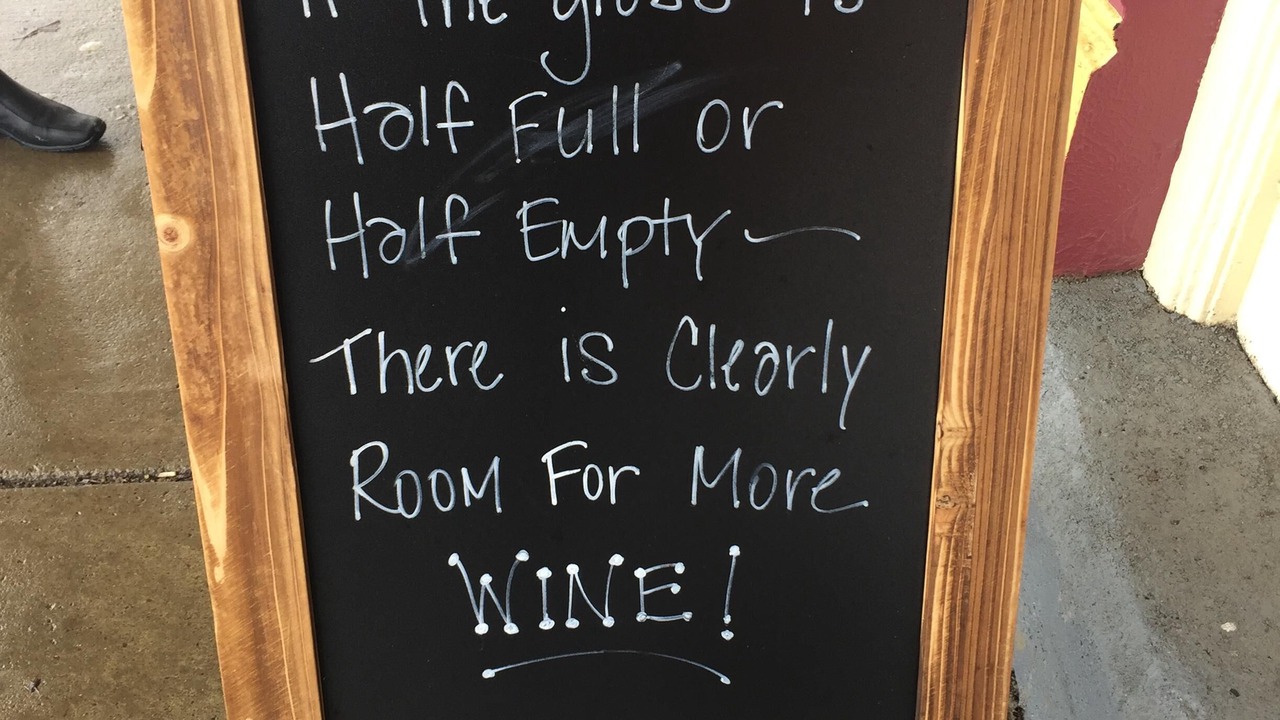 If the glass is
Half Full or
Half Empty —
There is Clearly
Room For More
WINE!